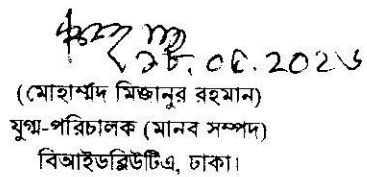 ২৮.০৫.২০২৬
(মোহাম্মদ মিজানুর রহমান)
যুগ্ম-পরিচালক (মানব সম্পদ)
বিআইডব্লিউটিএ, ঢাকা।